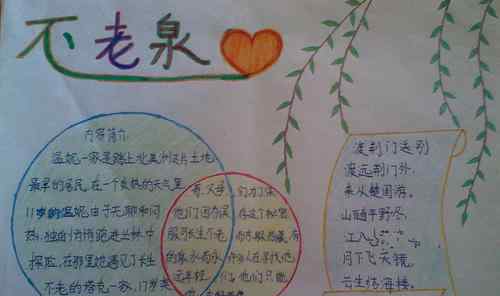 不老泉
内容简介
温妮一家是踏上北美洲这片土地
最早的居民,在一个炎热的天气里
11岁的温妮由于无聊和闷
热,独自悄悄跑进丛林中
探险,在那里她遇见了长生
不老的塔克一家,
哥,父母,
他们因为误
服了长生不老
的泉水而永
远年轻
他们只能
渡荆门送别
渡远荆门外,
来从楚国游。
山随平野尽,
江入
月下飞天镜,
云生结海楼。